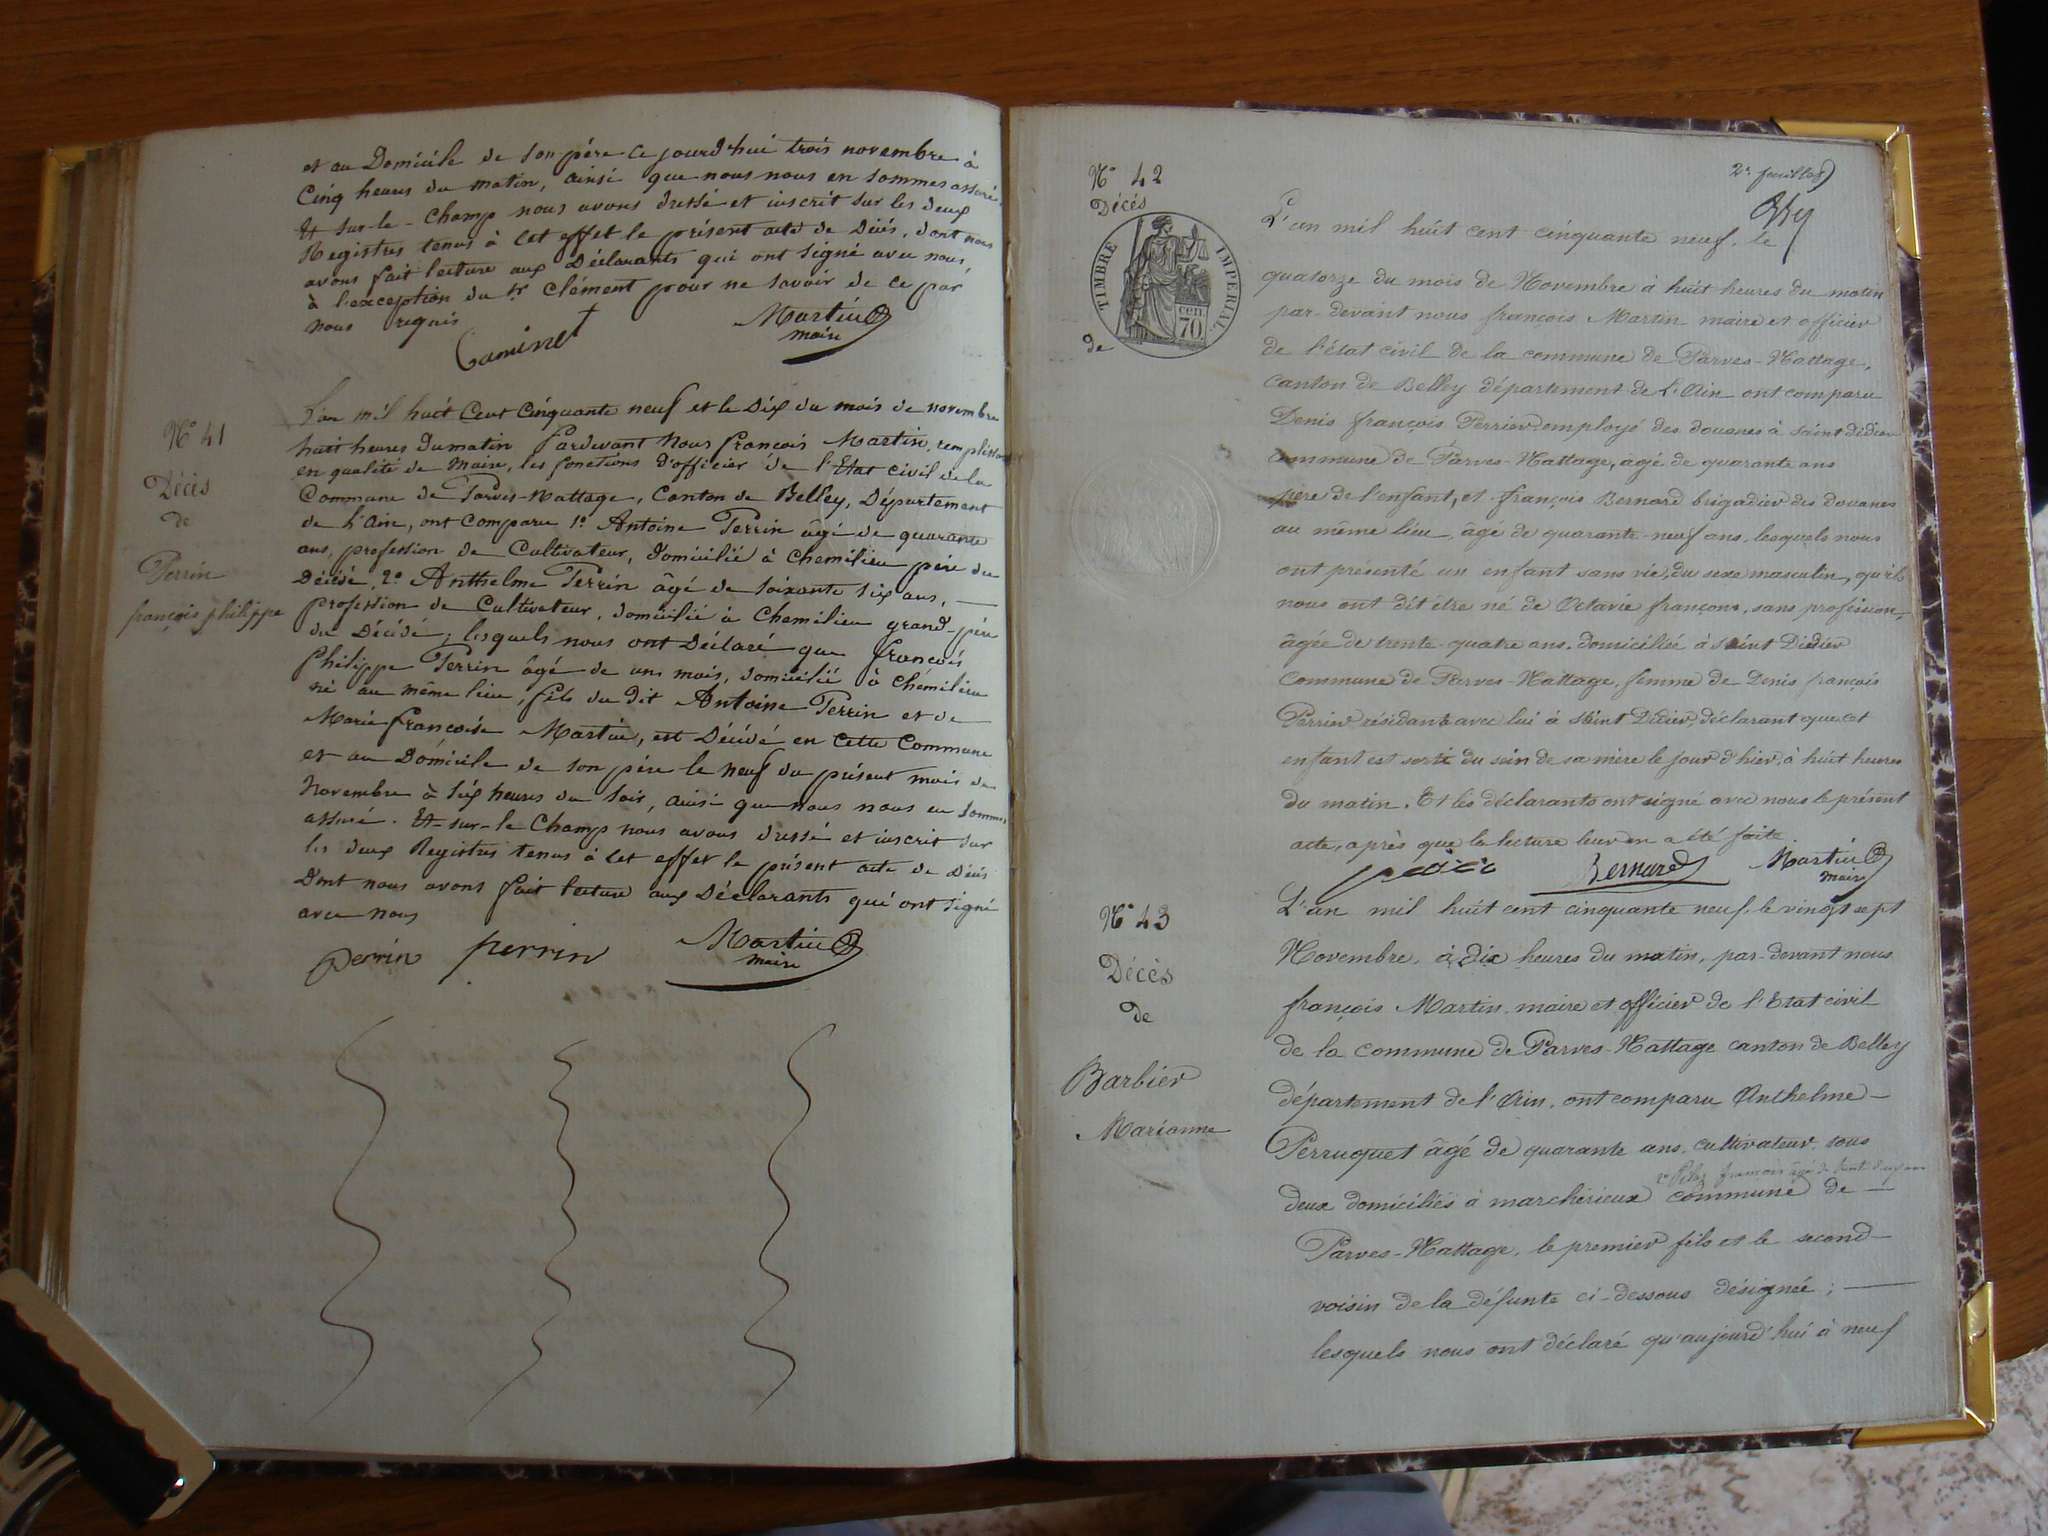 et au Domicile de son père ce jourd'hui trois novembre à
Cinq heures du matin, ainsi que nous nous en sommes assuré
Et sur-le-champ nous avons dressé et inscrit sur les deux
Registres tenus à cet effet le présent acte de Décès, dont nous
avons fait lecture aux Déclarants qui ont signé avec nous,
à l'exception du sr Clément pour ne savoir de ce par
nous requis
Martin
maire
N° 41
Décès
de
Perrin
françois philippe
L'an mil huit Cent Cinquante neuf et le Dix du mois de novembre
huit heures du matin Pardevant Nous françois Martin, remplissant
en qualité de Maire, les fonctions d'officier de l'Etat civil de la
Commune de Parves-Nattage, Canton de Belley, Département
de l'Ain, ont comparu 1° Antoine Perrin âgé de quarante
ans, profession de Cultivateur, domicilié à Chemilieu père du
Décédé, 2° Anthelme Perrin âgé de soixante six ans,
profession de Cultivateur, domicilié à Chemilieu grand-père
du Décédé; lesquels nous ont Déclaré que françois
philippe Perrin âgé de un mois, domicilié à Chémilieu
né au même lieu, fils du dit Antoine Perrin et de
Marie françoise Martin, est Décédé en cette Commune
et au Domicile de son père le neuf du présent mois de
Novembre à six heures du soir, ainsi que nous nous en sommes
assuré. Et-sur-le Champ nous avons dressé et inscrit sur
les deux Registres tenus à cet effet le présent acte de Décès
Dont nous avons fait lecture aux Déclarants qui ont signé
avec nous
perrin perrin Martin
maire
2e feuillet
N° 42
Décés
TIMBRE IMPÉRIAL
70 cen.
de
L'an mil huit cent cinquante neuf, le
quatorze du mois de Novembre à huit heures du matin
par-devant nous françois Martin maire et officier
de l'état civil de la commune de Parves-Nattage,
canton de Belley département de l'Ain ont comparu
Denis françois Perrier employé des douanes à saint didier
commune de Parves-Nattage, âgé de quarante ans
père de l'enfant, et françois Bernard brigadier des douanes
au même lieu, âgé de quarante-neuf ans, lesquels nous
ont présenté un enfant sans vie, du sexe masculin, qu'ils
nous ont dit être né de Octavie françons, sans profession,
âgée de trente-quatre ans, domiciliée à Saint Didier
commune de Parves-Nattage, femme de Denis françois
Perrier résidante avec lui à Saint Didier, déclarant que cet
enfant est sorti du sein de sa mère le jour d'hier, à huit heures
du matin. Et les déclarants ont signé avec nous le présent
acte, après que la lecture leur en a été faite.
Bernard Martin
maire
N° 43
Décès
de
Barbier
Marianne
L'an mil huit cent cinquante neuf, le vingt sept
Novembre, à dix heures du matin, par-devant nous
françois Martin, maire et officier de l'Etat civil
de la commune de Parves-Nattage canton de Belley
département de l'Ain, ont comparu Anthelme
Perruquet âgé de quarante ans, cultivateur, tous
deux domiciliés à marchérieux commune de
Parves-Nattage, le premier fils et le second
voisin de la défunte ci-dessous désignée;
lesquels nous ont déclaré qu'aujourd'hui à neuf